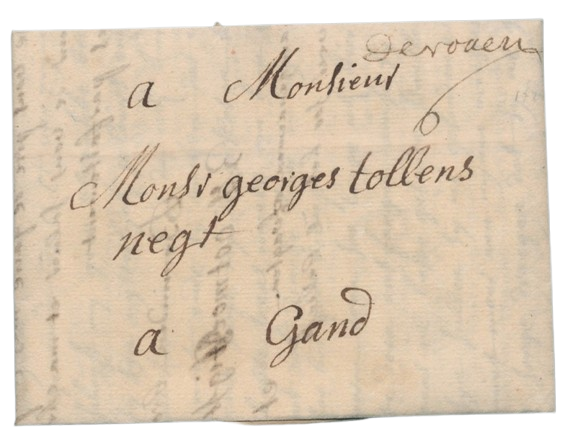 De rouen
a Monsieur
6
Monsr georges tollens
negt
a Gand